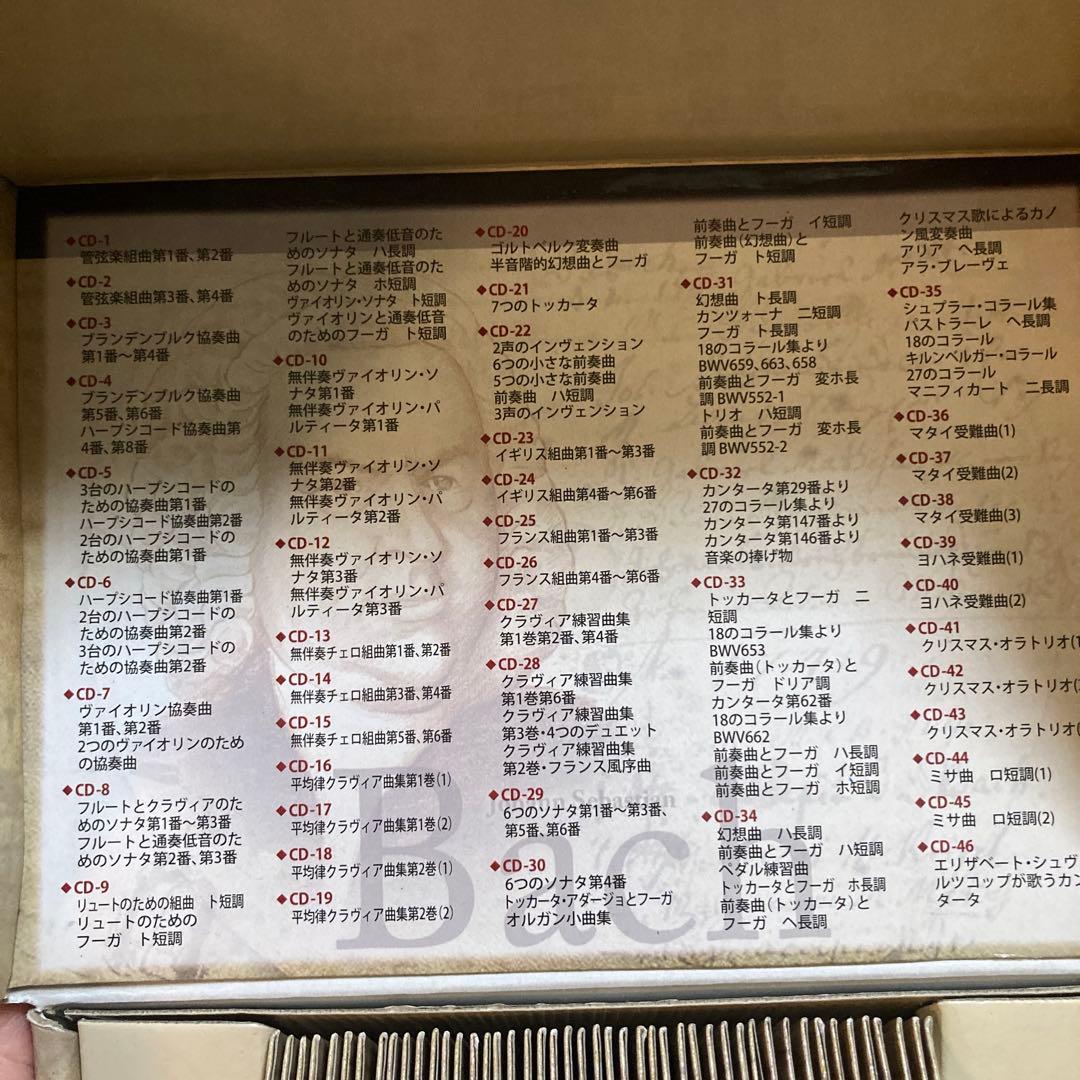 ◆CD-1
管弦楽組曲第1番、第2番
◆CD-2
管弦楽組曲第3番、第4番
◆CD-3
ブランデンブルク協奏曲
第1番〜第4番
◆CD-4
ブランデンブルク協奏曲
第5番、第6番
ハープシコード協奏曲第
4番、第8番
◆CD-5
3台のハープシコードの
ための協奏曲第1番
ハープシコード協奏曲第2番
2台のハープシコードの
ための協奏曲第1番
◆CD-6
ハープシコード協奏曲第1番
2台のハープシコードの
ための協奏曲第2番
3台のハープシコードの
ための協奏曲第2番
◆CD-7
ヴァイオリン協奏曲
第1番、第2番
2つのヴァイオリンのため
の協奏曲
◆CD-8
フルートとクラヴィアのた
めのソナタ第1番〜第3番
フルートと通奏低音のた
めのソナタ第2番、第3番
◆CD-9
リュートのための組曲 ト短調
リュートのための
フーガ ト短調
フルートと通奏低音のた
めのソナタ ハ長調
フルートと通奏低音のた
めのソナタ ホ短調
ヴァイオリン・ソナタ ト短調
ヴァイオリンと通奏低音
のためのフーガ ト短調
◆CD-10
無伴奏ヴァイオリン・ソ
ナタ第1番
無伴奏ヴァイオリン・パ
ルティータ第1番
◆CD-11
無伴奏ヴァイオリン・ソ
ナタ第2番
無伴奏ヴァイオリン・パ
ルティータ第2番
◆CD-12
無伴奏ヴァイオリン・ソ
ナタ第3番
無伴奏ヴァイオリン・パ
ルティータ第3番
◆CD-13
無伴奏チェロ組曲第1番、第2番
◆CD-14
無伴奏チェロ組曲第3番、第4番
◆CD-15
無伴奏チェロ組曲第5番、第6番
◆CD-16
平均律クラヴィア曲集第1巻(1)
◆CD-17
平均律クラヴィア曲集第1巻(2)
◆CD-18
平均律クラヴィア曲集第2巻(1)
◆CD-19
平均律クラヴィア曲集第2巻(2)
◆CD-20
ゴルトベルク変奏曲
半音階的幻想曲とフーガ
◆CD-21
7つのトッカータ
◆CD-22
2声のインヴェンション
6つの小さな前奏曲
5つの小さな前奏曲
前奏曲 ハ短調
3声のインヴェンション
◆CD-23
イギリス組曲第1番〜第3番
◆CD-24
イギリス組曲第4番〜第6番
◆CD-25
フランス組曲第1番〜第3番
◆CD-26
フランス組曲第4番〜第6番
◆CD-27
クラヴィア練習曲集
第1巻第2番、第4番
◆CD-28
クラヴィア練習曲集
第1巻第6番
クラヴィア練習曲集
第3巻・4つのデュエット
クラヴィア練習曲集
第2巻・フランス風序曲
◆CD-29
6つのソナタ第1番〜第3番、
第5番、第6番
◆CD-30
6つのソナタ第4番
トッカータ・アダージョとフーガ
オルガン小曲集
前奏曲とフーガ イ短調
前奏曲(幻想曲)と
フーガ ト短調
◆CD-31
幻想曲 ト長調
カンツォーナ 二短調
フーガ ト長調
18のコラール集より
BWV659、663、658
前奏曲とフーガ 変ホ長
調 BWV552-1
トリオ ハ短調
前奏曲とフーガ 変ホ長
調 BWV552-2
◆CD-32
カンタータ第29番より
27のコラール集より
カンタータ第147番より
カンタータ第146番より
音楽の捧げ物
◆CD-33
トッカータとフーガ 二
短調
18のコラール集より
BWV653
前奏曲(トッカータ)と
フーガ ドリア調
カンタータ第62番
18のコラール集より
BWV662
前奏曲とフーガ ハ長調
前奏曲とフーガ イ短調
前奏曲とフーガ ホ短調
◆CD-34
幻想曲 ハ長調
前奏曲とフーガ ハ短調
ペダル練習曲
トッカータとフーガ ホ長調
前奏曲(トッカータ)と
フーガ ヘ長調
クリスマス歌によるカノ
ン風変奏曲
アリア ヘ長調
アラ・ブレーヴェ
◆CD-35
シュプラー・コラール集
パストラーレ ヘ長調
18のコラール
キルンベルガー・コラール
27のコラール
マニフィカート 二長調
◆CD-36
マタイ受難曲(1)
◆CD-37
マタイ受難曲(2)
◆CD-38
マタイ受難曲(3)
◆CD-39
ヨハネ受難曲(1)
◆CD-40
ヨハネ受難曲(2)
◆CD-41
クリスマス・オラトリオ(1
◆CD-42
クリスマス・オラトリオ(
◆CD-43
クリスマス・オラトリオ(
◆CD-44
ミサ曲 ロ短調(1)
◆CD-45
ミサ曲 ロ短調(2)
◆CD-46
エリザベート・シュヴ
ルツコップが歌うカン
タータ
Sebastian
Bach